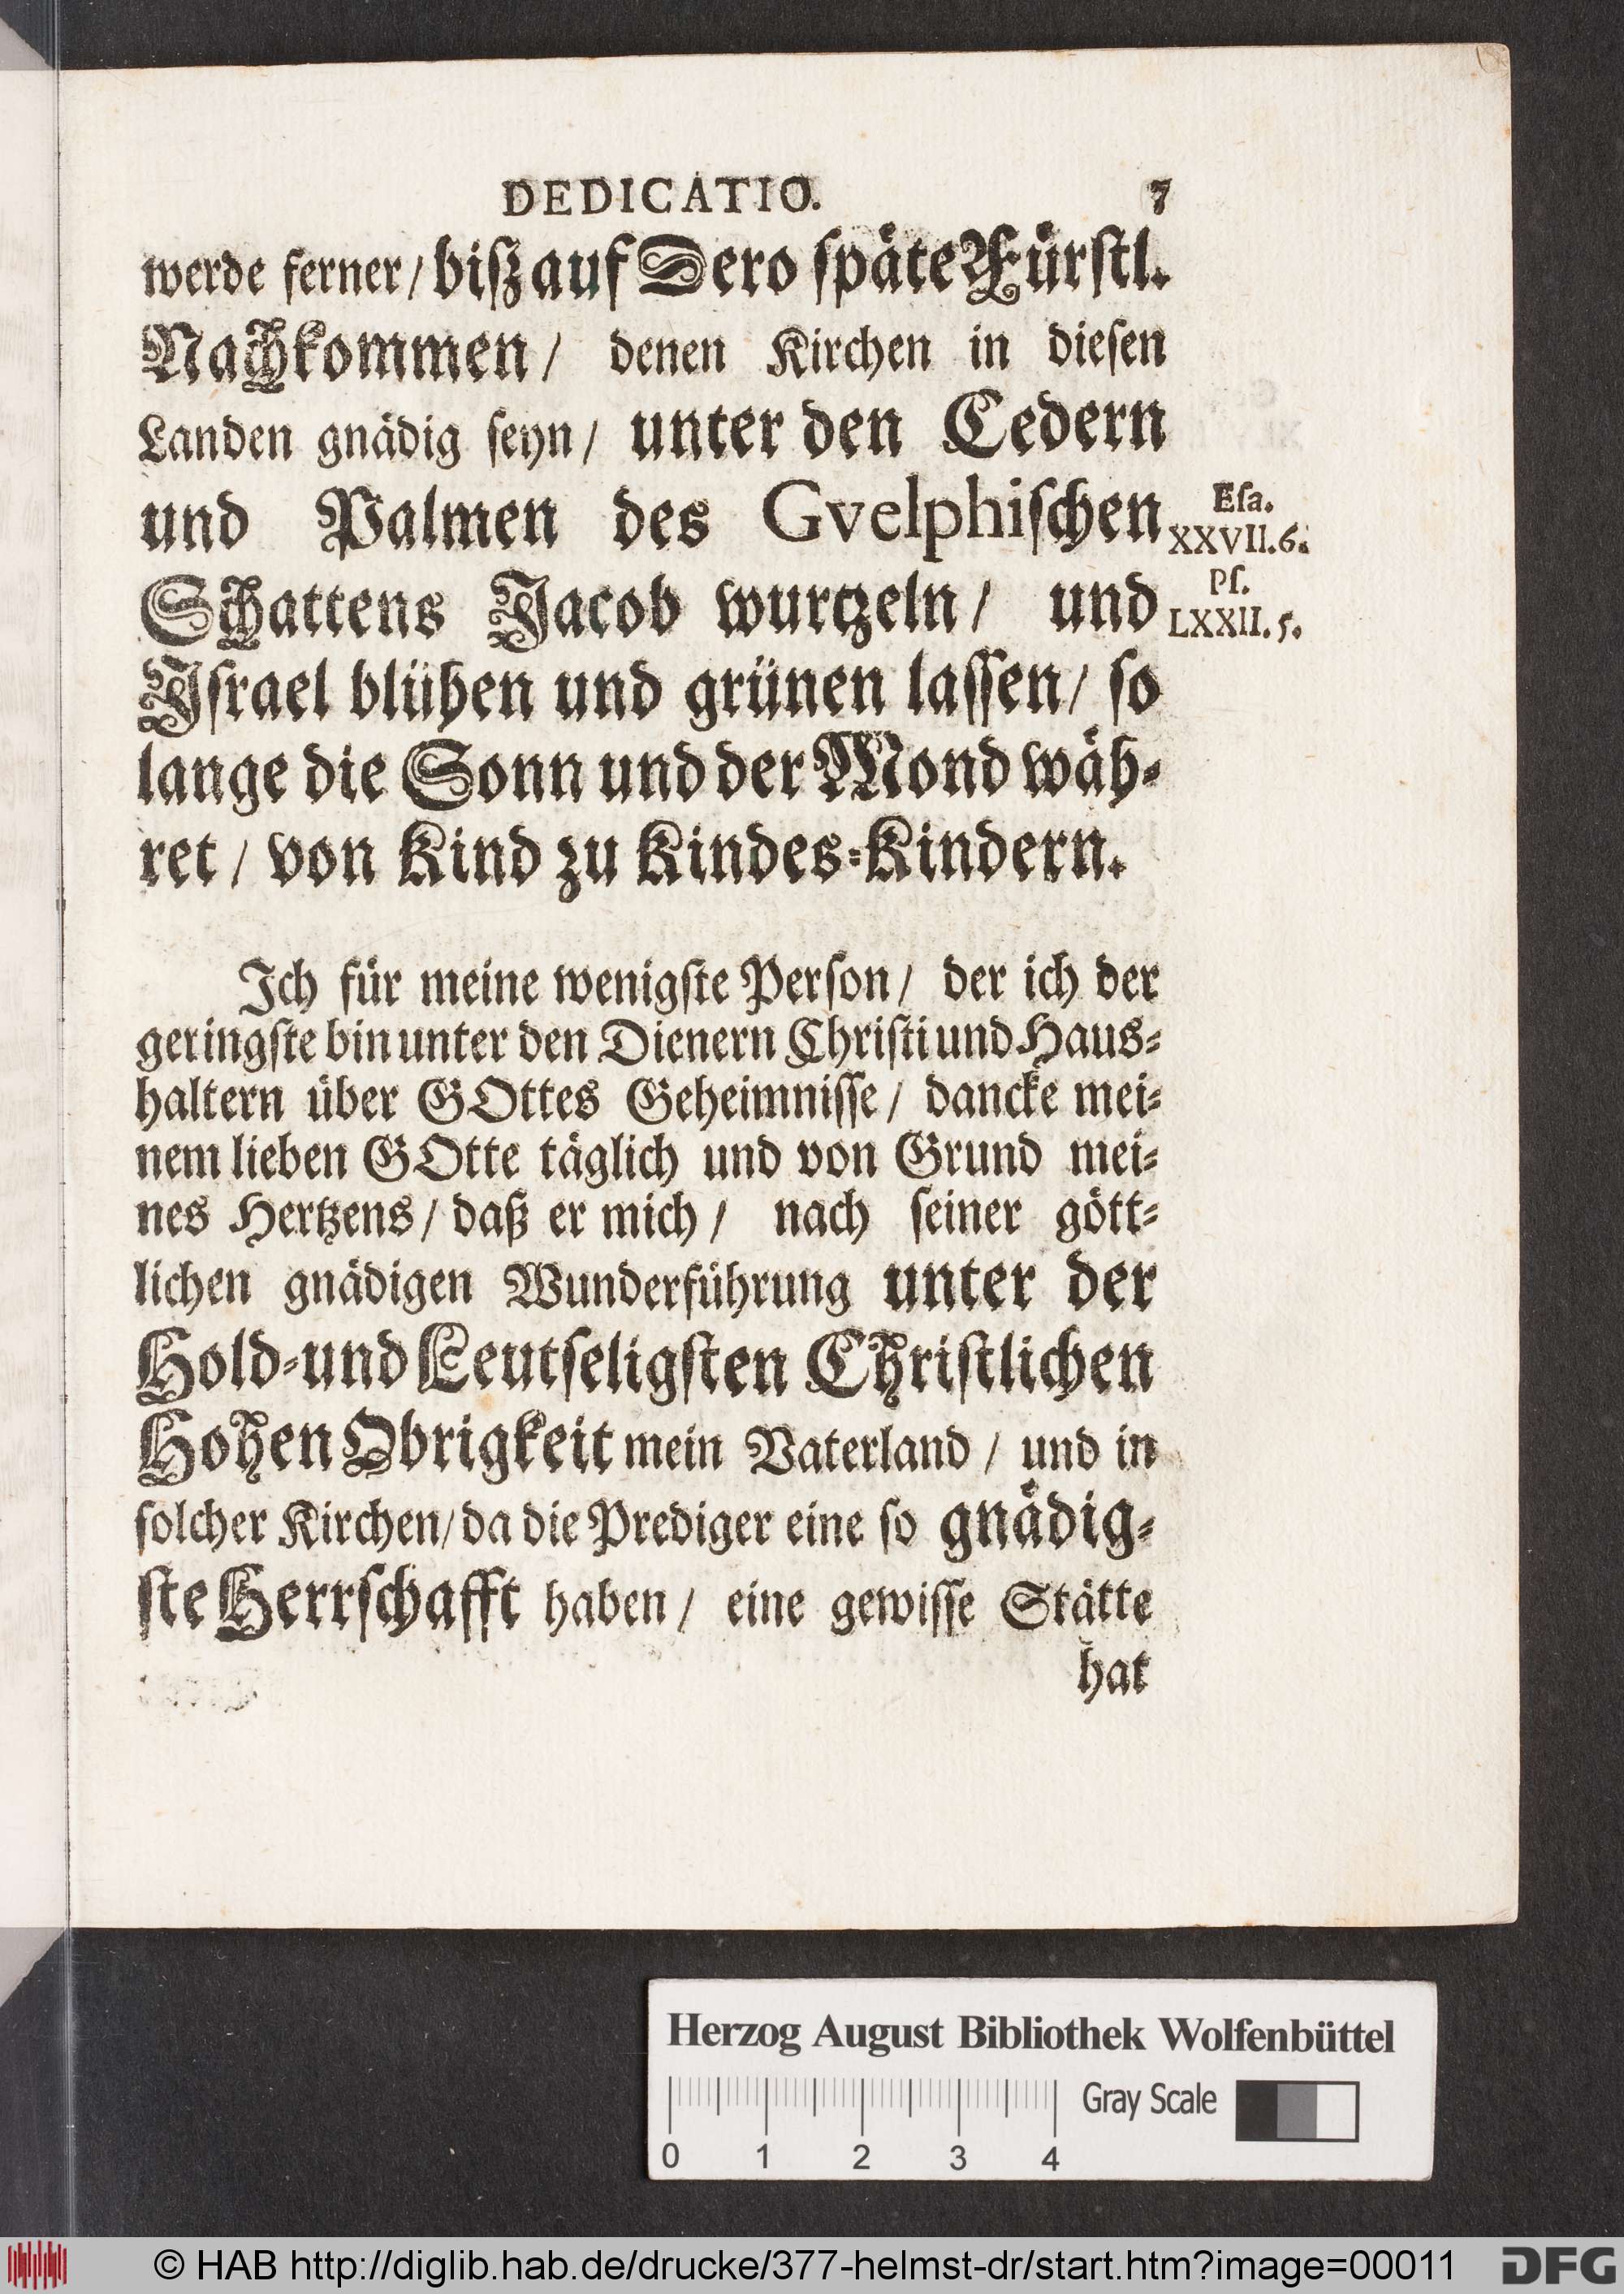 DEDICATIO. 7
werde ferner / biß auf Dero späte Fürstl.
Nachkommen / denen Kirchen in diesen
Landen gnädig seyn / unter den Cedern
und Palmen des Gvelphischen
Esa.
XXVII.6.
Schattens Jacob wurtzeln / und
Ps.
LXXII.5.
Israel blühen und grünen lassen / so
lange die Sonn und der Mond wäh-
ret / von Kind zu Kindes-Kindern.
Ich für meine wenigste Person / der ich der
geringste bin unter den Dienern Christi und Haus-
haltern über GOttes Geheimnisse / dancke mei-
nem lieben GOtte täglich und von Grund mei-
nes Hertzens / daß er mich / nach seiner gött-
lichen gnädigen Wunderführung unter der
Hold-und Leutseligsten Christlichen
Hohen Obrigkeit mein Vaterland / und in
solcher Kirchen / da die Prediger eine so gnädig-
ste Herrschafft haben / eine gewisse Stätte
hat
Herzog August Bibliothek Wolfenbüttel
Gray Scale
0 1 2 3 4
© HAB http://diglib.hab.de/drucke/377-helmst-dr/start.htm?image=00011 DFG